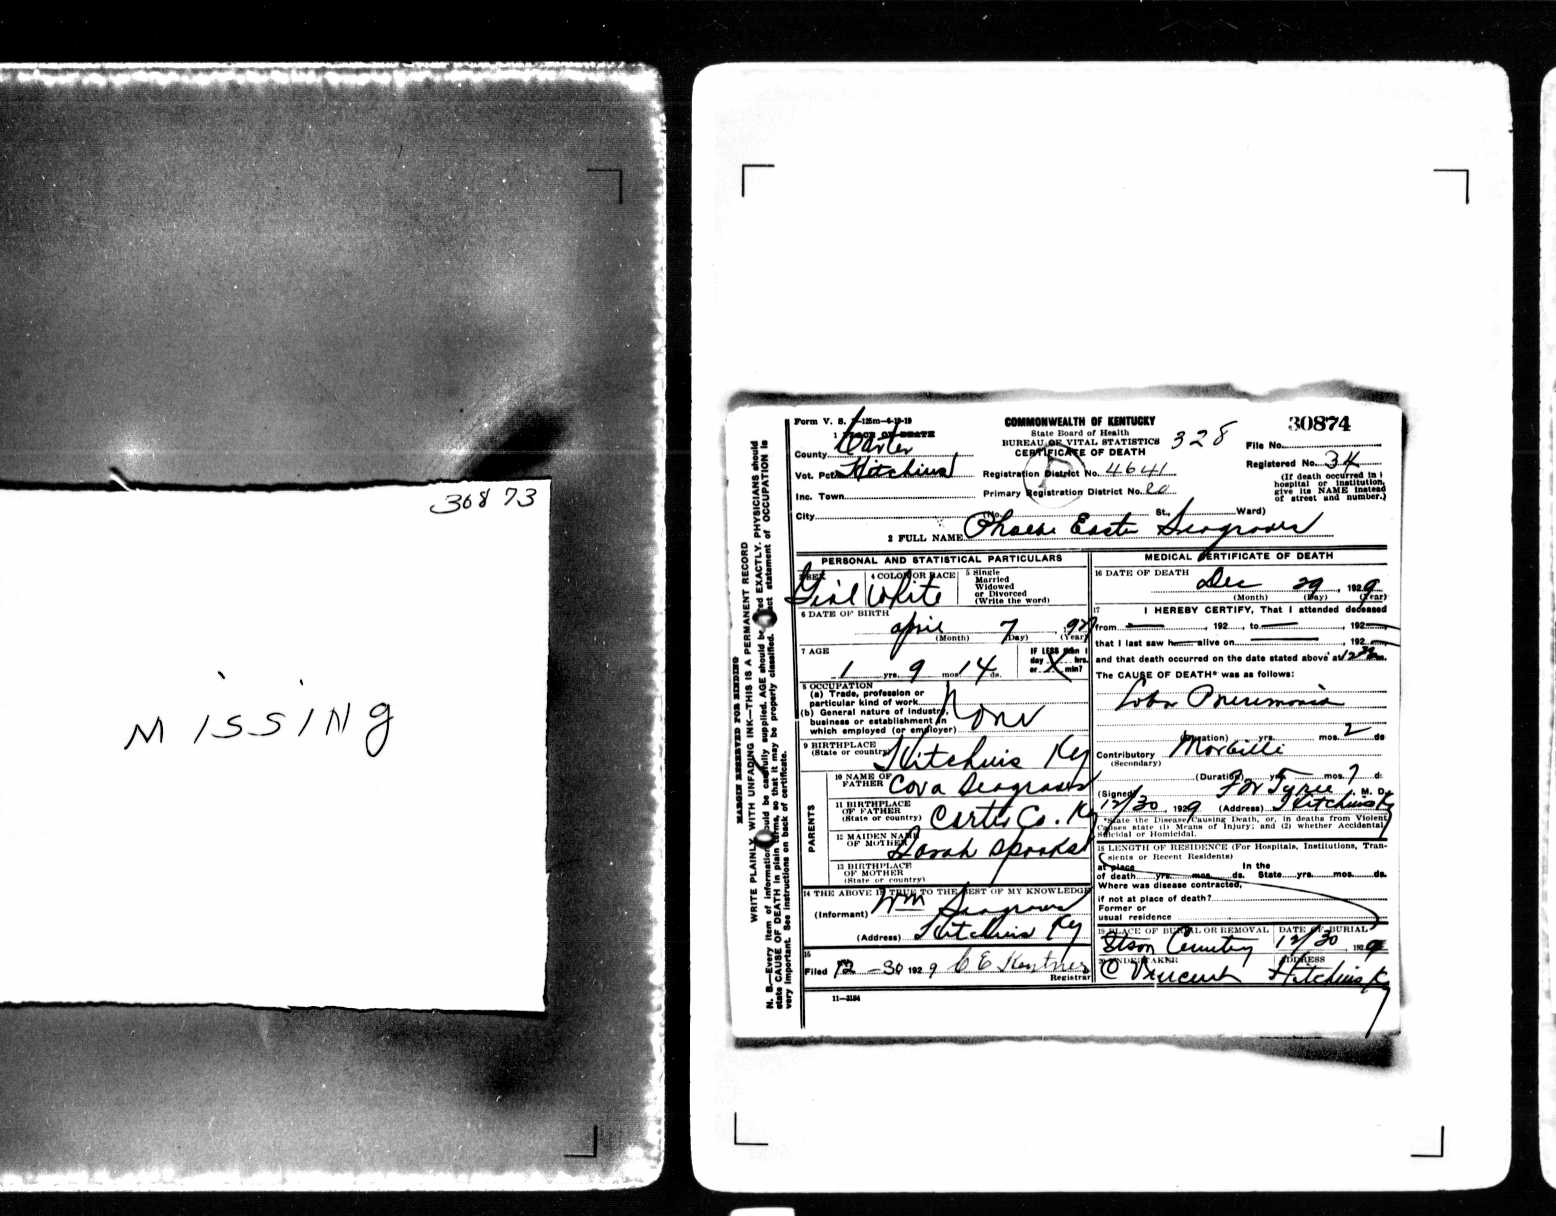 30873
Missing
Form V. S. 1-125m-4-19-19
COMMONWEALTH OF KENTUCKY
State Board of Health
BUREAU OF VITAL STATISTICS
CERTIFICATE OF DEATH
328
30874
File No.
Registered No. 34
(If death occurred in
hospital or institution,
give its NAME instead
of street and number.)
1 PLACE OF DEATH
County Carter
Vot. Pct. Hitchins
Registration District No. 4641
Inc. Town
Primary Registration District No. 20
City
(No. St., Ward)
2 FULL NAME Phoebe Easter Seagraves
PERSONAL AND STATISTICAL PARTICULARS
3 SEX Girl
4 COLOR OR RACE White
5 Single
Married
Widowed
or Divorced
(Write the word)
6 DATE OF BIRTH
April 7
(Month) (Day) (Year)
7 AGE
1 yrs. 9 mos. 14 ds.
IF LESS than 1
day hrs.
or X min?
8 OCCUPATION
(a) Trade, profession or
particular kind of work
(b) General nature of industry,
business or establishment in
which employed (or employer)
None
9 BIRTHPLACE
(State or country) Hitchins Ky
PARENTS
10 NAME OF
FATHER Cova Seagraves
11 BIRTHPLACE
OF FATHER
(State or country) Carter Co. Ky
12 MAIDEN NAME
OF MOTHER Sarah
13 BIRTHPLACE
OF MOTHER
(State or country)
14 THE ABOVE IS TRUE TO THE BEST OF MY KNOWLEDGE
(Informant) Wm Seagraves
(Address) Hitchins Ky
15
Filed 12-30 1929 C E
Registrar
11-3184
MEDICAL CERTIFICATE OF DEATH
16 DATE OF DEATH
Dec 29, 1929
(Month) (Day) (Year)
17 I HEREBY CERTIFY, That I attended deceased
from , 192 , to , 192
that I last saw h alive on , 192
and that death occurred on the date stated above at m.
The CAUSE OF DEATH* was as follows:
Lobar Pneumonia
(Duration) yrs. mos. 2 ds
Contributory Morbilli
(Secondary)
(Duration) yrs. mos. 7 d
(Signed) Tyree, M. D.
12/30, 1929 (Address) Hitchins Ky
*State the Disease Causing Death, or, in deaths from Violent
Causes state (1) Means of Injury; and (2) whether Accidental,
Suicidal or Homicidal.
18 LENGTH OF RESIDENCE (For Hospitals, Institutions, Tran-
sients or Recent Residents)
at place In the
of death yrs. mos. ds. State yrs. mos. ds.
Where was disease contracted,
if not at place of death?
Former or
usual residence
19 PLACE OF BURIAL OR REMOVAL DATE OF BURIAL
Cemetery 12/30, 1929
20 UNDERTAKER ADDRESS
C Vincent Hitchins Ky
MARGIN RESERVED FOR BINDING
WRITE PLAINLY, WITH UNFADING INK—THIS IS A PERMANENT RECORD
N. B.—Every item of information should be carefully supplied. AGE should be stated EXACTLY. PHYSICIANS should
state CAUSE OF DEATH in plain terms, so that it may be properly classified. Exact statement of OCCUPATION is
very important. See instructions on back of certificate.